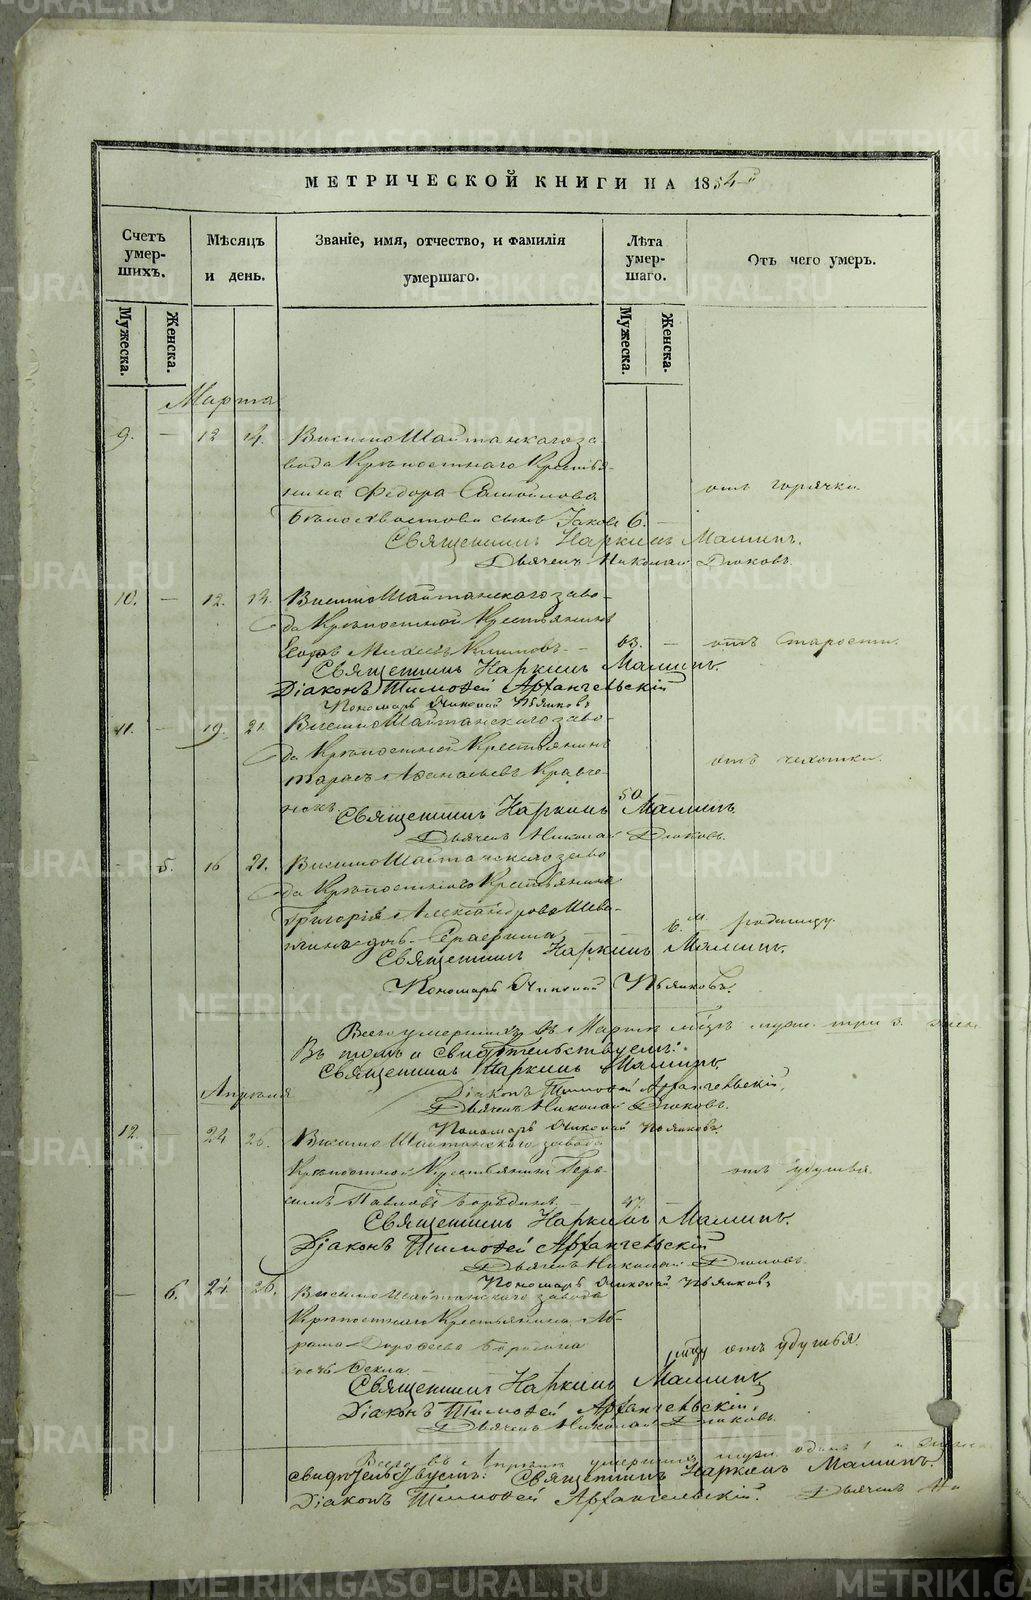 МЕТРИЧЕСКОЙ КНИГИ НА 1854
Счетъ умер-шихъ.
Мѣсяцъ и день.
Званіе, имя, отчество, и фамилія умершаго.
Лѣта умер-шаго.
Отъ чего умеръ.
Мужеска. Женска.
Мужеска. Женска.
Марта
9. — 12 14. Висимо Шайтанскаго за-
вода Крѣпостнаго Крестья-
нина Федора Самойлова отъ горячки
Бѣлохвостова сынъ Іаковъ 6. —
Священникъ Наркисъ Маминъ.
Дьячекъ Николай Дюковъ.
10. — 12. 14. Висимо Шайтанскаго заво-
да Крѣпостной Крестьянинъ
Егоръ 63. — отъ старости.
Священникъ Наркисъ Маминъ.
Діаконъ Тимофей Архангельскій
Пономарь
11. — 19. 21. Висимо Шайтанскаго заво-
да Крѣпостной Крестьянинъ
Тарасъ Афанасьевъ Кравче- отъ чахотки.
нокъ. 50
Священникъ Наркисъ Маминъ.
Дьячекъ Николай Дюковъ.
— 5. 16 21. Висимо Шайтанскаго заво
да Крѣпостнаго Крестьянина
Григорія Александрова Шева-
6. м. родимцу.
дочь Серафима
Священникъ Наркисъ Маминъ.
Пономарь
Всего умершихъ въ Мартѣ муж. три 3.
Въ томъ и свидѣтельствуемъ:
Священникъ Наркисъ Маминъ.
Апрѣля
Діаконъ Тимофей Архангельскій.
Дьячекъ Николай Дюковъ.
Пономарь
12. 24 26. Висимо Шайтанскаго завода
Крѣпостной Крестьянинъ Гера- отъ удушья
симъ Павловъ 47. —
Священникъ Наркисъ Маминъ.
Діаконъ Тимофей Архангельскій
Дьячекъ Николай Дюковъ.
Пономарь
— 6. 24. 26. Висимо Шайтанскаго завода
Крѣпостнаго Крестьянина
Дорофеева отъ удушья.
дочь Фекла
Священникъ Наркисъ Маминъ
Діаконъ Тимофей Архангельскій,
Дьячекъ Николай Дюковъ.
Всего въ Апрѣлѣ умершихъ муж. одинъ 1 и
свидѣтельствуемъ: Священникъ Наркисъ Маминъ.
Діаконъ Тимофей Архангельскій. Дьячекъ
METRIKI.GASO-URAL.RU